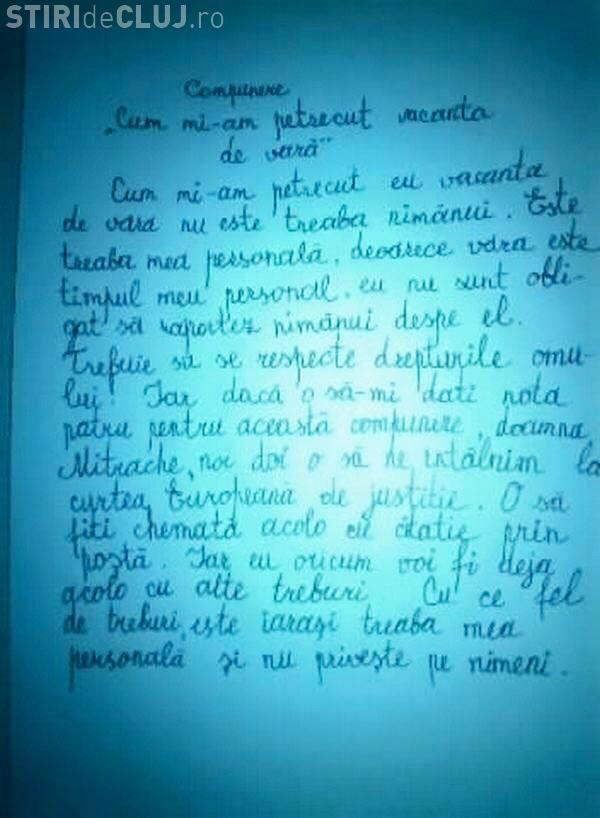 STIRIdeCLUJ.ro
Compunere
„Cum mi-am petrecut vacanta
de vară"
Cum mi-am petrecut eu vacanta
de vara nu este treaba nimănui. Este
treaba mea personală, deoarece vara este
timpul meu personal. eu nu sunt obli-
gat să raportez nimănui despe el.
Trebuie să se respecte drepturile omu-
lui! Iar dacă o să-mi dati nota
patru pentru această compunere, doamna
Mitrache, noi doi o să ne întâlnim la
curtea Europeană de justitie. O să
fiti chemată acolo cu citatie prin
poștă. Iar eu oricum voi fi deja
acolo cu alte treburi Cu ce fel
de treburi, este iarași treaba mea
personală și nu privește pe nimeni.